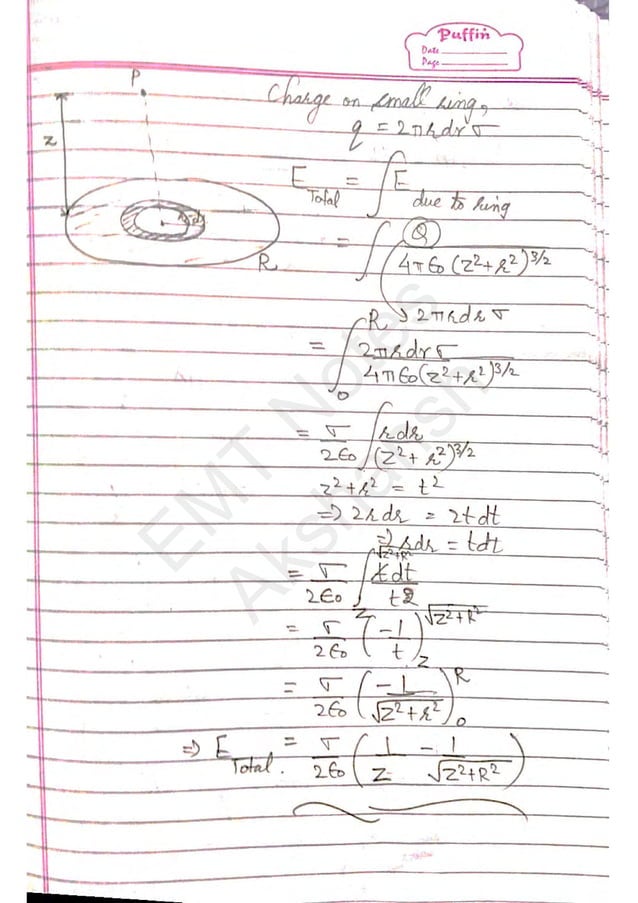 Puffin
Date
Page
P
Z
r dr
R
Charge on small ring,
q = 2πrdrσ
E_Total = ∫ E_due to ring
= ∫ Q / 4πϵ0 (z²+r²)^3/2
→ 2πrdrσ
= ∫_0^R 2πrdrσ / 4πϵ0(z²+r²)^3/2
= σ/2ϵ0 ∫ rdr / (z²+r²)^3/2
z²+r² = t²
⇒ 2rdr = 2tdt
⇒ rdr = tdt
= σ/2ϵ0 ∫_z^√z²+R² tdt / t2
= σ/2ϵ0 (-1/t)_z^√z²+R²
= σ/2ϵ0 (-1/√z²+r²)_0^R
⇒ E_Total. = σ/2ϵ0 (1/z - 1/√z²+R²)
EMT Notes
Akshansh